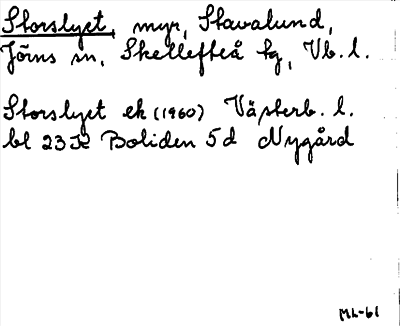 Storslyet, myr, Stavalund,
Jörns sn, Skellefteå tg, Vb. l.
Storslyet ek (1960) Västerb. l.
bl 23 K Boliden 5 d Nygård
ML-61